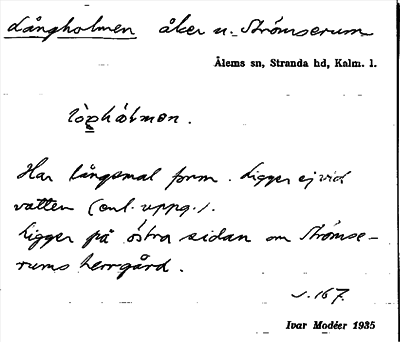 Långholmen åker u. Strömserum
Ålems sn, Stranda hd, Kalm. l.
Har långsmal form. Ligger ej vid
vatten (enl. uppg.).
Ligger på östra sidan om Strömse-
rums herrgård.
s. 167.
Ivar Modéer 1935